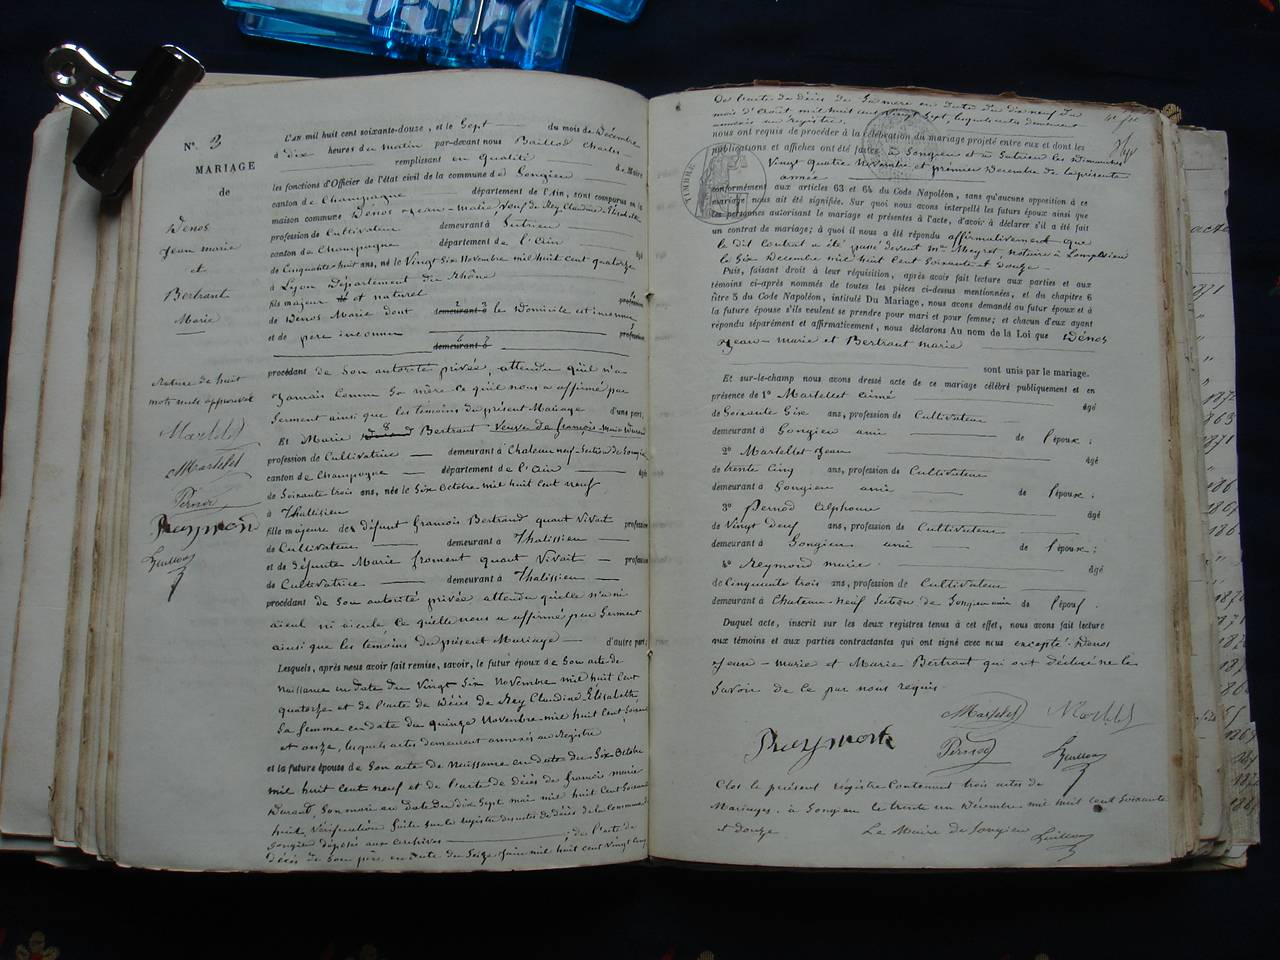 N.° 3
MARIAGE
de
Denos
Jean marie
et
Bertrant
Marie
Rature de huit
mots nuls approuvé
Martelet
Martelet
Pernod
Reymond
Guillon
L'an mil huit cent soixante-douze, et le Sept du mois de Décembre
à dix heures du matin par-devant nous Baillod Charles
remplissant en Qualité de Maire
les fonctions d'Officier de l'état civil de la commune de Songieu
canton de Champagne département de l'Ain, sont comparus en la
maison commune Denos Jean-Marie, Veuf de Rey Claudine Elisabeth
profession de Cultivateur demeurant à Sutrieu
canton de Champagne département de l'Ain âgé
de Cinquante huit ans, né le Vingt Six Novembre mil huit cent quatorze
à Lyon Département du Rhône
fils majeur et naturel
de Denos Marie dont demeurant à le Domicile est inconnu profession
et de père inconnu profession
demeurant à
procédant de Son autorité privée, attendu qu'il n'a
Jamais connu Sa mère ce qu'il nous a affirmé par
Serment ainsi que les témoins du présent Mariage d'une part;
Et Marie Bertrant Veuve de françois Marie Durand
profession de Cultivatrice demeurant à Chateau neuf Section de Songieu
canton de Champagne département de l'Ain âgé
de Soixante trois ans, née le Six Octobre mil huit cent neuf
à Thalissieu
fille majeure de défunt François Bertrand quant Vivait profession
de Cultivateur demeurant à Thalissieu
et de défunte Marie froment quant Vivait profession
de Cultivatrice demeurant à Thalissieu
procédant de Son autorité privée attendu qu'elle n'a ni
aïeul ni aïeule ce qu'elle nous a affirmé par Serment
ainsi que les témoins du présent Mariage d'autre part;
Lesquels, après nous avoir fait remise, savoir, le futur époux de Son acte de
Naissance en date du Vingt Six Novembre mil huit cent
quatorze et de l'acte de Décès de Rey Claudine Elisabeth,
Sa femme en date du quinze Novembre mil huit cent Soixante
et onze, lesquels actes demeurent annexés au Registre
et la future épouse de Son acte de Naissance en date du Six Octobre
mil huit cent neuf et de l'acte de décès de francois marie
Durand, Son mari en date du dix Sept mai mil huit cent Soixante
huit, Vérification faite sur le registre des actes de décès de la commune de
Songieu déposés aux archives ; de l'acte de
décès de Son père en date du Seize Juin mil huit cent vingt cinq
De l'acte de décès de Sa mère en date du dix neuf du
mois d'Août mil huit cent vingt Sept, lesquels actes demeurent
annexés au Registre,
nous ont requis de procéder à la célébration du mariage projeté entre eux et dont les
publications et affiches ont été faites à Songieu et à Sutrieu les Dimanches
Vingt quatre Novembre et premier Décembre de la présente
année
TIMBRE
conformément aux articles 63 et 64 du Code Napoléon, sans qu'aucune opposition à ce
mariage nous ait été signifiée. Sur quoi nous avons interpellé les futurs époux ainsi que
les personnes autorisant le mariage et présentes à l'acte, d'avoir à déclarer s'il a été fait
un contrat de mariage; à quoi il nous a été répondu affirmativement que
le dit Contrat a été passé devant Me Meyret, notaire à Lompnieu
le Six Décembre mil huit cent Soixante et Douze.
Puis, faisant droit à leur réquisition, après avoir fait lecture aux parties et aux
témoins ci-après nommés de toutes les pièces ci-dessus mentionnées, et du chapitre 6
titre 5 du Code Napoléon, intitulé Du Mariage, nous avons demandé au futur époux et à
la future épouse s'ils veulent se prendre pour mari et pour femme; et chacun d'eux ayant
répondu séparément et affirmativement, nous déclarons Au nom de la Loi que Denos
Jean-marie et Bertrant marie
sont unis par le mariage.
Et sur-le-champ nous avons dressé acte de ce mariage célébré publiquement et en
présence de 1° Martellet aimé âgé
de Soixante Six ans, profession de Cultivateur
demeurant à Songieu ami de l'époux;
2° Martellet Jean âgé
de trente Cinq ans, profession de Cultivateur
demeurant à Songieu ami de l'époux;
3° Pernod Alphonse âgé
de Vingt Neuf ans, profession de Cultivateur
demeurant à Songieu ami de l'époux;
4° Reymond marie âgé
de Cinquante trois ans, profession de Cultivateur
demeurant à Chateau-Neuf Section de Songieu ami de l'époux.
Duquel acte, inscrit sur les deux registres tenus à cet effet, nous avons fait lecture
aux témoins et aux parties contractantes qui ont signé avec nous excepté Denos
Jean-marie et Marie Bertrant qui ont déclaré ne le
Savoir de Ce par nous requis.
Martelet Martelet
Reymond Pernod Guillon
Clos le présent régistre Contenant trois actes de
Mariages. à Songieu le trente un Décembre mil huit cent soixante
et douze Le Maire de Songieu Guillon